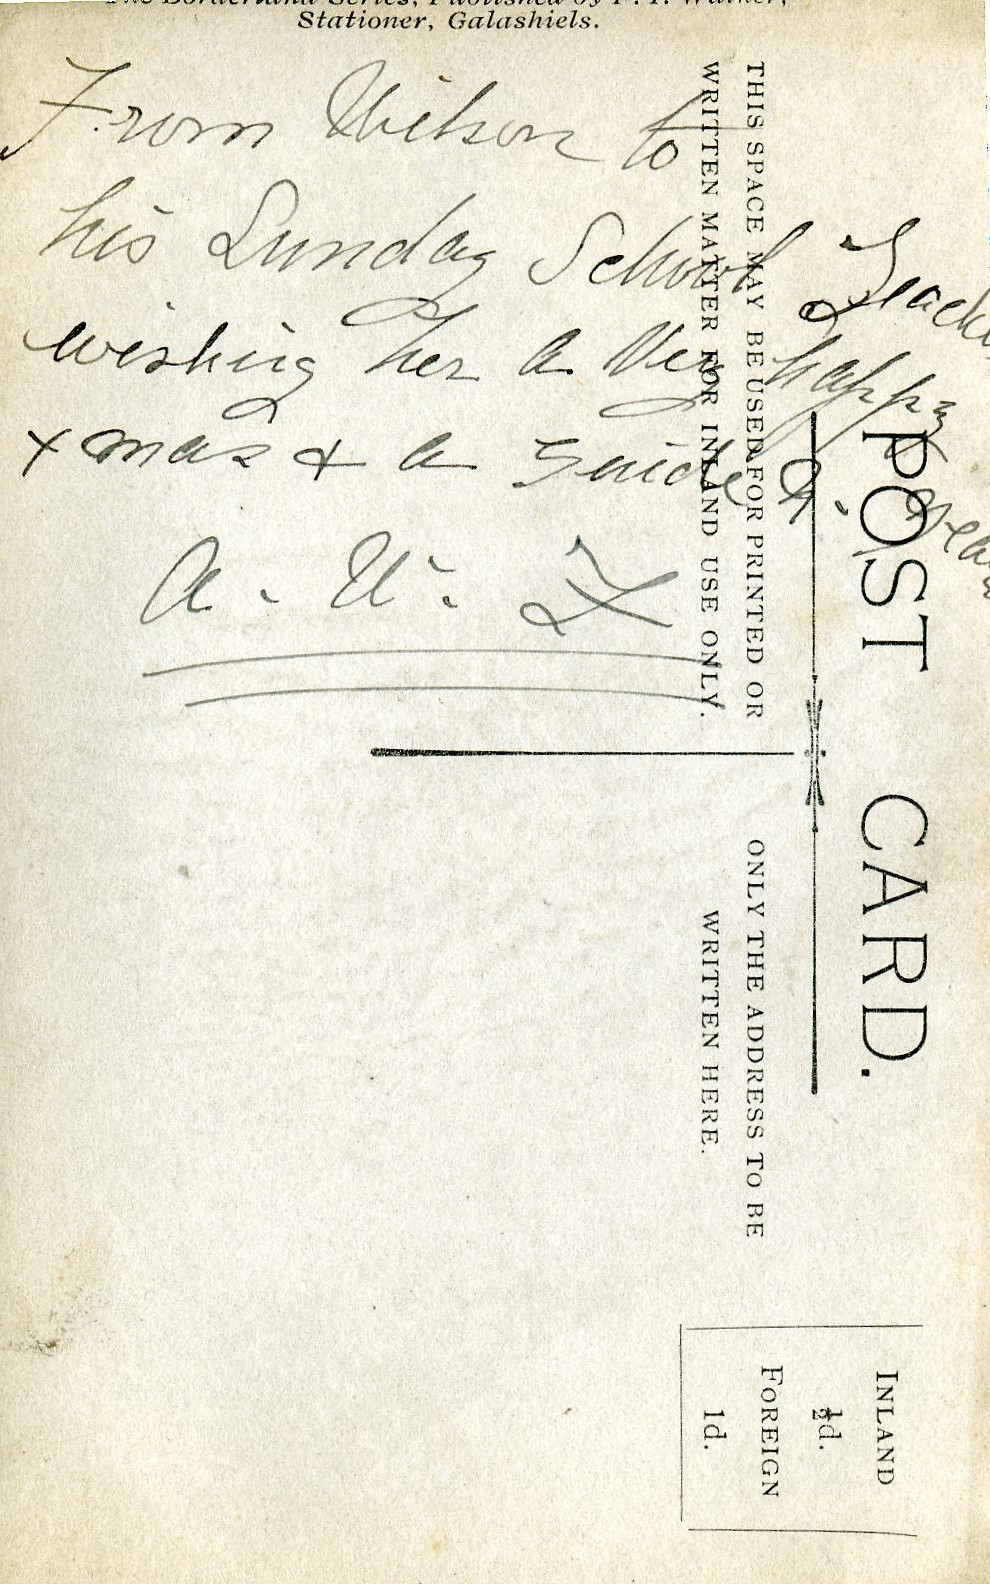 The Borderland Series, Published by
Stationer, Galashiels.
From Wilson to
his Sunday School Teacher
wishing her a Very happy
xmas & a Guid N. Year
A. W. F
THIS SPACE MAY BE USED FOR PRINTED OR
WRITTEN MATTER FOR INLAND USE ONLY.
POST CARD.
ONLY THE ADDRESS TO BE
WRITTEN HERE.
INLAND
½d.
FOREIGN
1d.